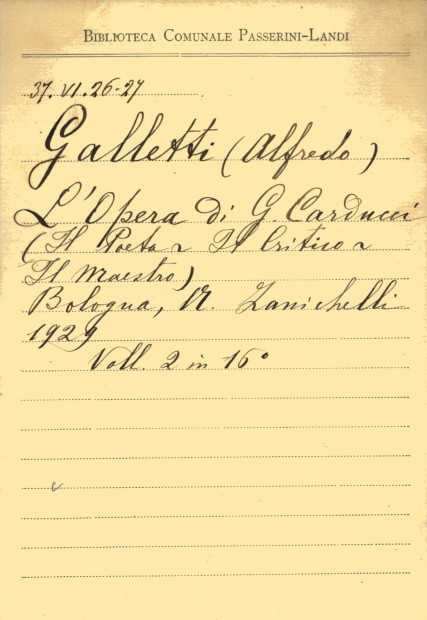 BIBLIOTECA COMUNALE PASSERINI-LANDI
37. VI. 26-27
Galletti (Alfredo)
L'Opera di G. Carducci
(Il Poeta ~ Il Critico ~
Il Maestro)
Bologna, N. Zanichelli
1929
Voll. 2 in 16°